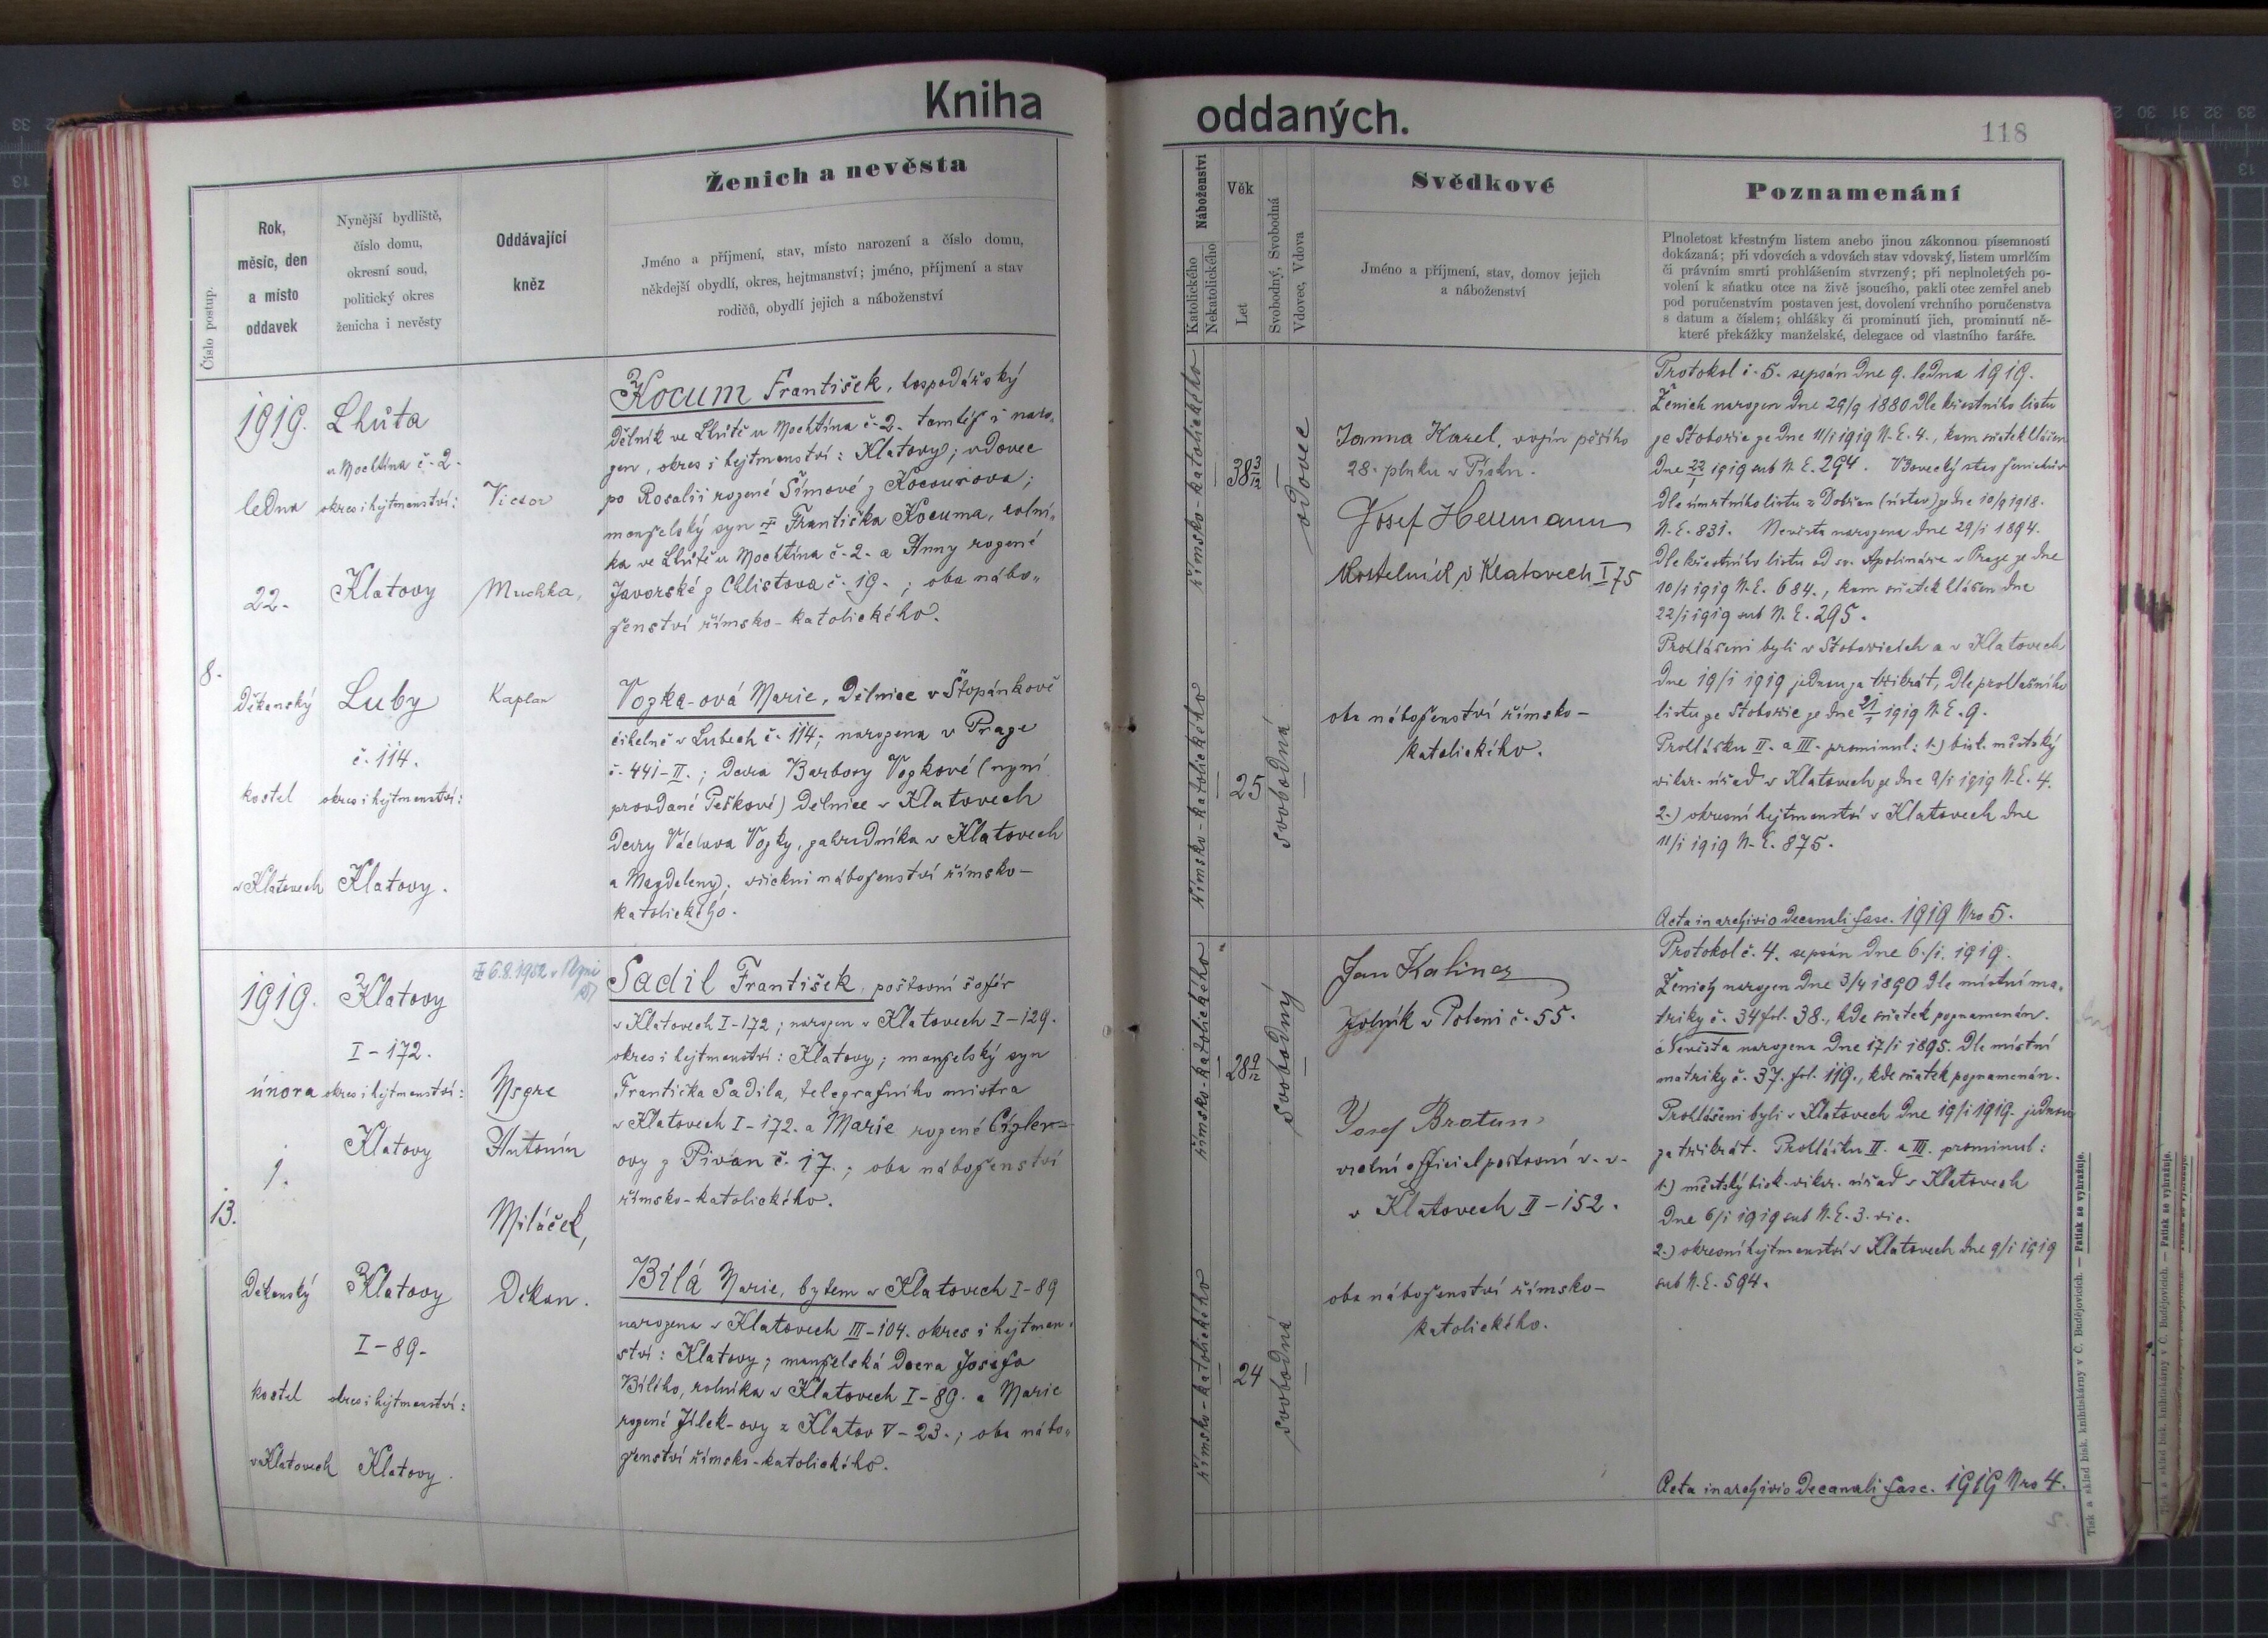 Kniha
oddaných.
118
Číslo postup.
Rok,
měsíc, den
a místo
oddavek
Nynější bydliště,
číslo domu,
okresní soud,
politický okres
ženicha i nevěsty
Oddávající
kněz
Ženich a nevěsta
Jméno a příjmení, stav, místo narození a číslo domu,
někdejší obydlí, okres, hejtmanství; jméno, příjmení a stav
rodičů, obydlí jejich a náboženství
Náboženství
Katolického
Nekatolického
Věk
Let
Svobodný, Svobodná
Vdovec, Vdova
Svědkové
Jméno a příjmení, stav, domov jejich
a náboženství
Poznamenání
Plnoletost křestným listem anebo jinou zákonnou písemností
dokázaná; při vdovcích a vdovách stav vdovský, listem umrlčím
či právním smrti prohlášením stvrzený; při neplnoletých po-
volení k sňatku otce na živě jsoucího, pakli otec zemřel aneb
pod poručenstvím postaven jest, dovolení vrchního poručenstva
s datum a číslem; ohlášky či prominutí jich, prominutí ně-
které překážky manželské, delegace od vlastního faráře.
8.
1919.
ledna
22.
Děkanský
kostel
v Klatovech
Lhůta
u Mochtína č. 2.
okres i hejtmanství:
Klatovy
Luby
č. 114.
okres i hejtmanství:
Klatovy.
Victor
Muchka,
Kaplan
Kocum František, hospodářský
dělník ve Lhůtě u Mochtína č. 2. tamtéž i naro-
zen, okres i hejtmanství: Klatovy; vdovec
po Rosalii rozené Šímové z Kocourova;
manželský syn † Františka Kocuma, rolní-
ka ve Lhůtě u Mochtína č. 2. a Anny rozené
Javorské z Chlistova č. 19.; oba nábo-
ženství římsko-katolického.
Vozka-ová Marie, dělnice v Štěpánkově
cihelně v Lubech č. 114; narozena v Praze
č. 441-II.; dcera Barbory Vozkové (nyní
provdané Peškové) dělnice v Klatovech
dcery Václava Vozky, zahradníka v Klatovech
a Magdaleny; všickni náboženství římsko-
katolického.
římsko-katolického
38 3/12
vdovec
římsko-katolického
25
svobodná
Janna Karel, vojín pěšího
28. pluku v Písku.
Josef Hermann
kostelník v Klatovech I 75
oba náboženství římsko-
katolického.
Protokol č. 5. sepsán dne 9. ledna 1919.
Ženich narozen dne 29/9 1880 dle křestního listu
ze Stobořic ze dne 11/I 1919 N. E. 4., kam sňatek hlášen
dne 22/I 1919 sub N. E. 294. Vdovecký stav ženichův
dle úmrtního listu z Dobřan (ústav) ze dne 10/9 1918.
N. E. 831. Nevěsta narozena dne 29/I 1894.
dle křestního listu od sv. Apolináře v Praze ze dne
10/I 1919 N. E. 684., kam sňatek hlášen dne
22/I 1919 sub N. E. 295.
Prohlášeni byli v Stobořicích a v Klatovech
dne 19/I 1919 jednou za třikrát, dle prohlašního
listu ze Stobořic ze dne 21/I 1919 N. E. 9.
Prohlášku II. a III. prominul: 1.) bisk. městský
vikar. úřad v Klatovech ze dne 9/I 1919 N. E. 4.
2.) okresní hejtmanství v Klatovech dne
11/I 1919 N. E. 875.
Acta in archivio decanali fasc. 1919 Nro 5.
13.
1919.
února
1.
Děkanský
kostel
v Klatovech
Klatovy
I-172.
okres i hejtmanství:
Klatovy
Klatovy
I-89.
okres i hejtmanství:
Klatovy.
Msgre
Antonín
Miláček,
Děkan.
6.8.1952 v
Sadil František, poštovní šofér
v Klatovech I-172; narozen v Klatovech I-129.
okres i hejtmanství: Klatovy; manželský syn
Františka Sadila, telegrafního mistra
v Klatovech I-172. a Marie rozené Cígler-
ovy z Pivan č. 17.; oba náboženství
římsko-katolického.
Bílá Marie, bytem v Klatovech I-89
narozena v Klatovech III-104. okres i hejtman-
ství: Klatovy; manželská dcera Josefa
Bílého, rolníka v Klatovech I-89. a Marie
rozené Jílek-ovy z Klatov V-23.; oba nábo-
ženství římsko-katolického.
římsko-katolického
28 9/12
svobodný
římsko-katolického
24
svobodná
Jan Kalina
rolník v Poleni č. 55.
Josef Bratan
vrchní official poštovní v. v.
v Klatovech II-152.
oba náboženství římsko-
katolického.
Protokol č. 4. sepsán dne 6./I. 1919.
Ženich narozen dne 3/4 1890 dle místní ma-
triky č. 34 fol. 38., kde sňatek poznamenán.
Nevěsta narozena dne 17/I 1895. dle místní
matriky č. 37. fol. 119., kde sňatek poznamenán.
Prohlášeni byli v Klatovech dne 19/I 1919. jednou
za třikrát. Prohlášku II. a III. prominul:
1.) městský bisk. vikar. úřad v Klatovech
dne 6/I 1919 sub N. E. 3. vic.
2.) okresní hejtmanství v Klatovech dne 9/I 1919
sub N. E. 594.
Acta in archivio decanali fasc. 1919 Nro 4.
Tisk a sklad bisk. knihtiskárny v Č. Budějovicích. — Patisk se vyhražuje.